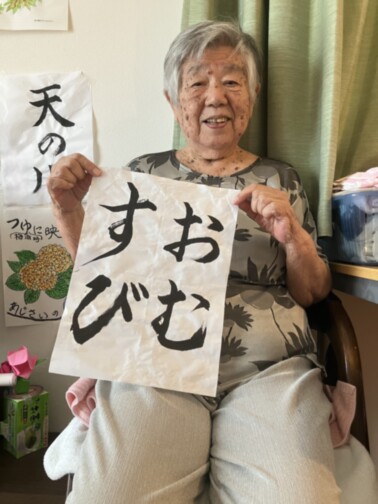 おむ
すび
天の川
つゆに映
あじさいの